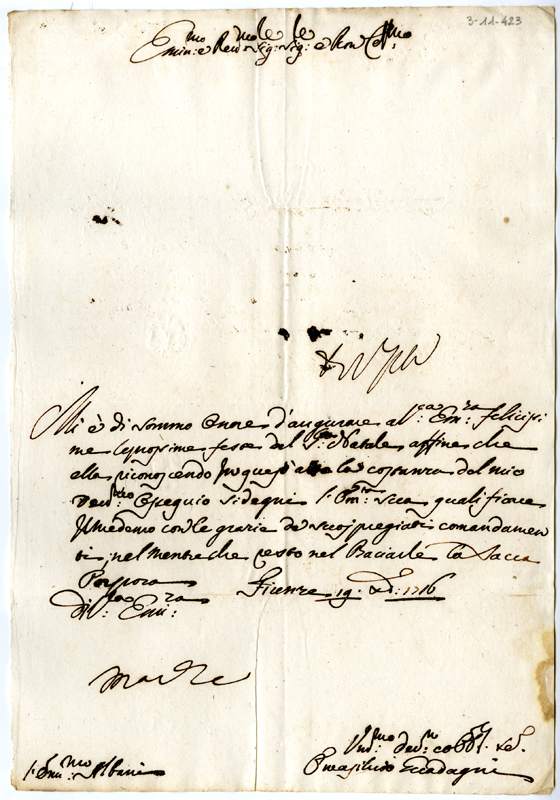 3-11-423
Emin.mo e Rev.mo Sig.r Sig.r e Pron Col.mo
Mi è di sommo onore d'augurare al V.ra Em.za felicissi
me le prossime feste del S.to Natale affine che
ella riconoscendo in quest'atto la costanza del mio
dev.mo ossequio si degni l'Em.za sua qualificare
il medemo con le grazie de suoi pregiati comandamen
ti, nel mentre che resto nel Baciarle la Sacra
Porpora
Di V.ra Emi.za Firenze 19 Xb. 1716
Um.mo dev.mo Se.
Guadagni
Em.mo Albani